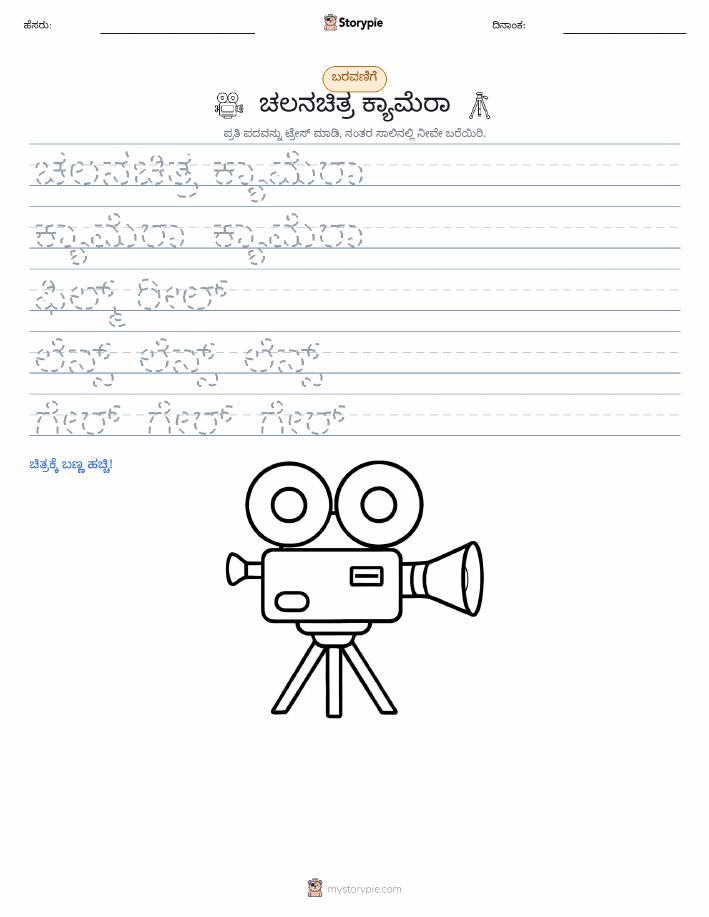 ಹೆಸರು: Storypie ದಿನಾಂಕ:
ಬರವಣಿಗೆ
ಚಲನಚಿತ್ರ ಕ್ಯಾಮೆರಾ
ಪ್ರತಿ ಪದವನ್ನು ಟ್ರೇಸ್ ಮಾಡಿ, ನಂತರ ಸಾಲಿನಲ್ಲಿ ನೀವೇ ಬರೆಯಿರಿ.
ಚಲನಚಿತ್ರ ಕ್ಯಾಮೆರಾ
ಕ್ಯಾಮೆರಾ ಕ್ಯಾಮೆರಾ
ಫಿಲ್ಮ್ ರೀಲ್
ಲೆನ್ಸ್ ಲೆನ್ಸ್ ಲೆನ್ಸ್
ಗೇರ್ ಗೇರ್ ಗೇರ್
ಚಿತ್ರಕ್ಕೆ ಬಣ್ಣ ಹಚ್ಚಿ!
mystorypie.com